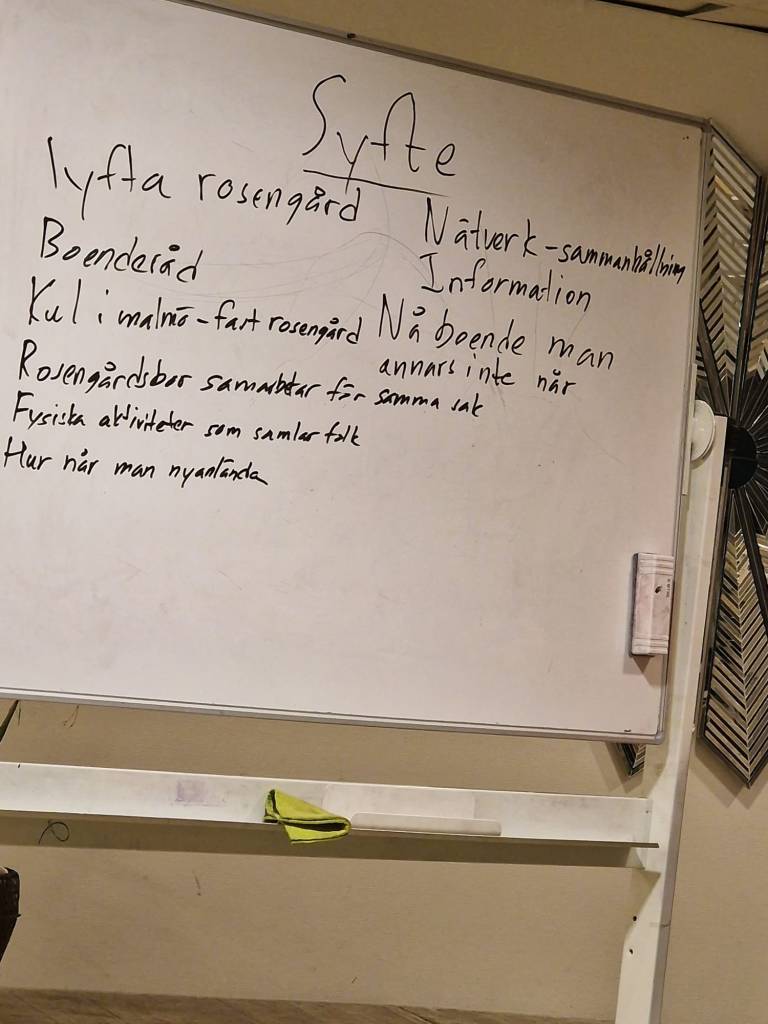 Syfte
lyfta rosengård
Boenderåd
Kul i malmö - fast rosengård
Rosengårdsbor samarbetar för samma sak
Fysiska aktiviteter som samlar folk
Hur når man nyanlända
Nätverk - sammanhållning
Information
Nå boende man
annars inte når